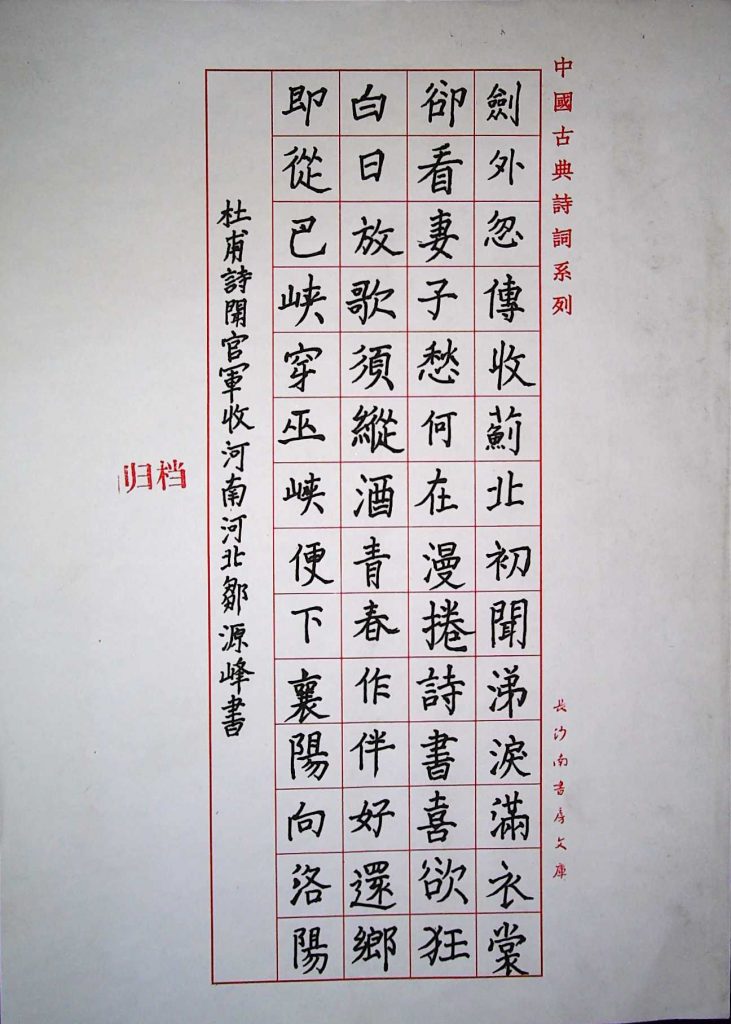 中國古典詩詞系列
長沙南書房文庫
劍外忽傳收薊北初聞涕淚滿衣裳
卻看妻子愁何在漫捲詩書喜欲狂
白日放歌須縱酒青春作伴好還鄉
即從巴峽穿巫峽便下襄陽向洛陽
杜甫詩聞官軍收河南河北鄒源峰書
归档